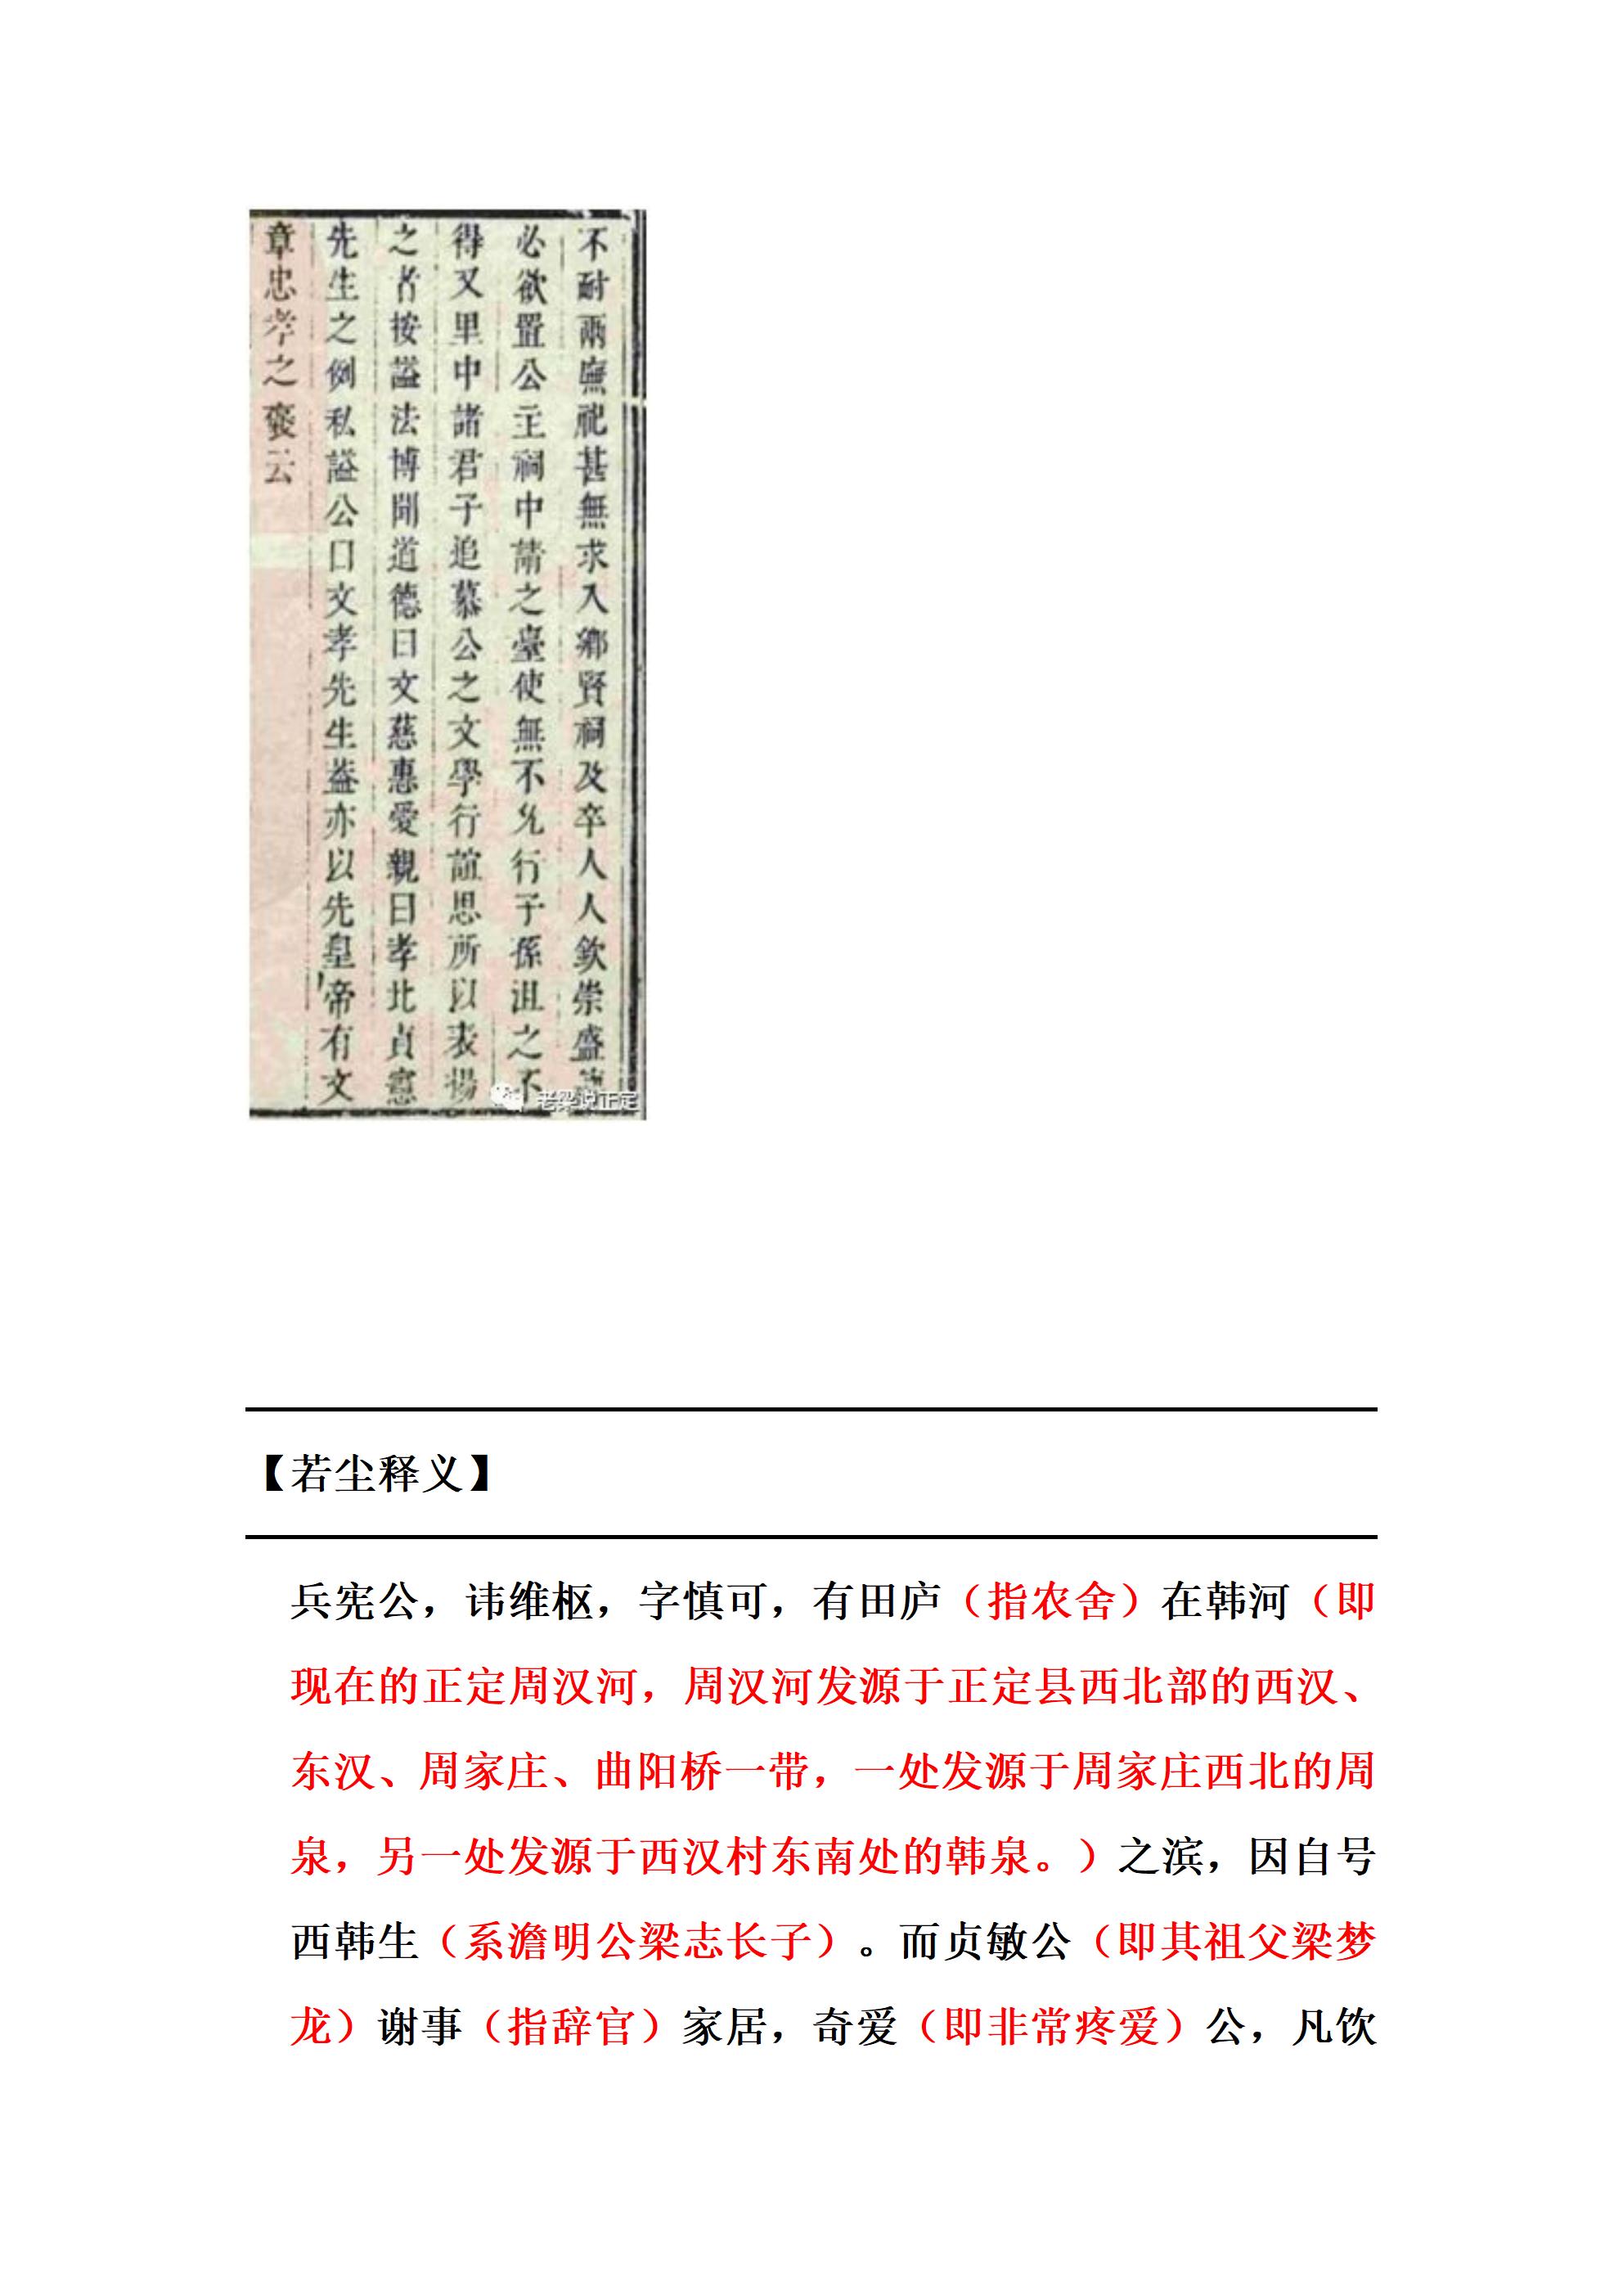 不耐兩廡祀甚無求入鄉賢祠及卒人人欽崇盛
必欲置公主祠中請之臺使無不允行子孫沮之不
得又里中諸君子追慕公之文學行誼思所以表揚
之者按謚法博聞道德曰文慈惠愛親曰孝北貞憲
先生之例私謚公曰文孝先生蓋亦以先皇帝有文
章忠孝之褒云
老梁说正定
【若尘释义】
兵宪公，讳维枢，字慎可，有田庐（指农舍）在韩河（即
现在的正定周汉河，周汉河发源于正定县西北部的西汉、
东汉、周家庄、曲阳桥一带，一处发源于周家庄西北的周
泉，另一处发源于西汉村东南处的韩泉。）之滨，因自号
西韩生（系澹明公梁志长子）。而贞敏公（即其祖父梁梦
龙）谢事（指辞官）家居，奇爱（即非常疼爱）公，凡饮